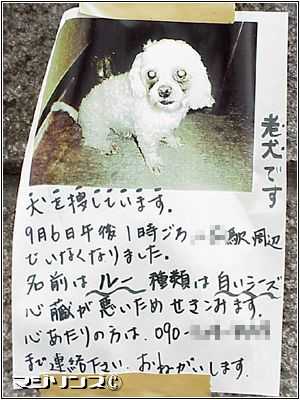 老犬です
犬を捜しています。
9月6日午後1時ごろ 駅周辺
でいなくなりました。
名前は ルー 種類は 白い
心臓が悪いためせきこみます。
心あたりの方は 090-
まで連絡下さい。おねがいします。